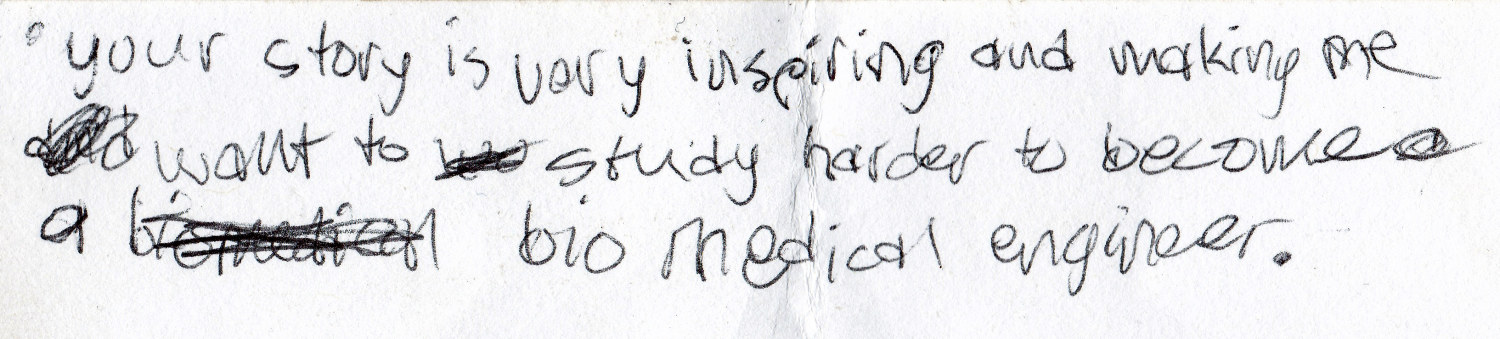 your story is very inspiring and making me
want to study harder to become
a biomedical bio medical engineer.